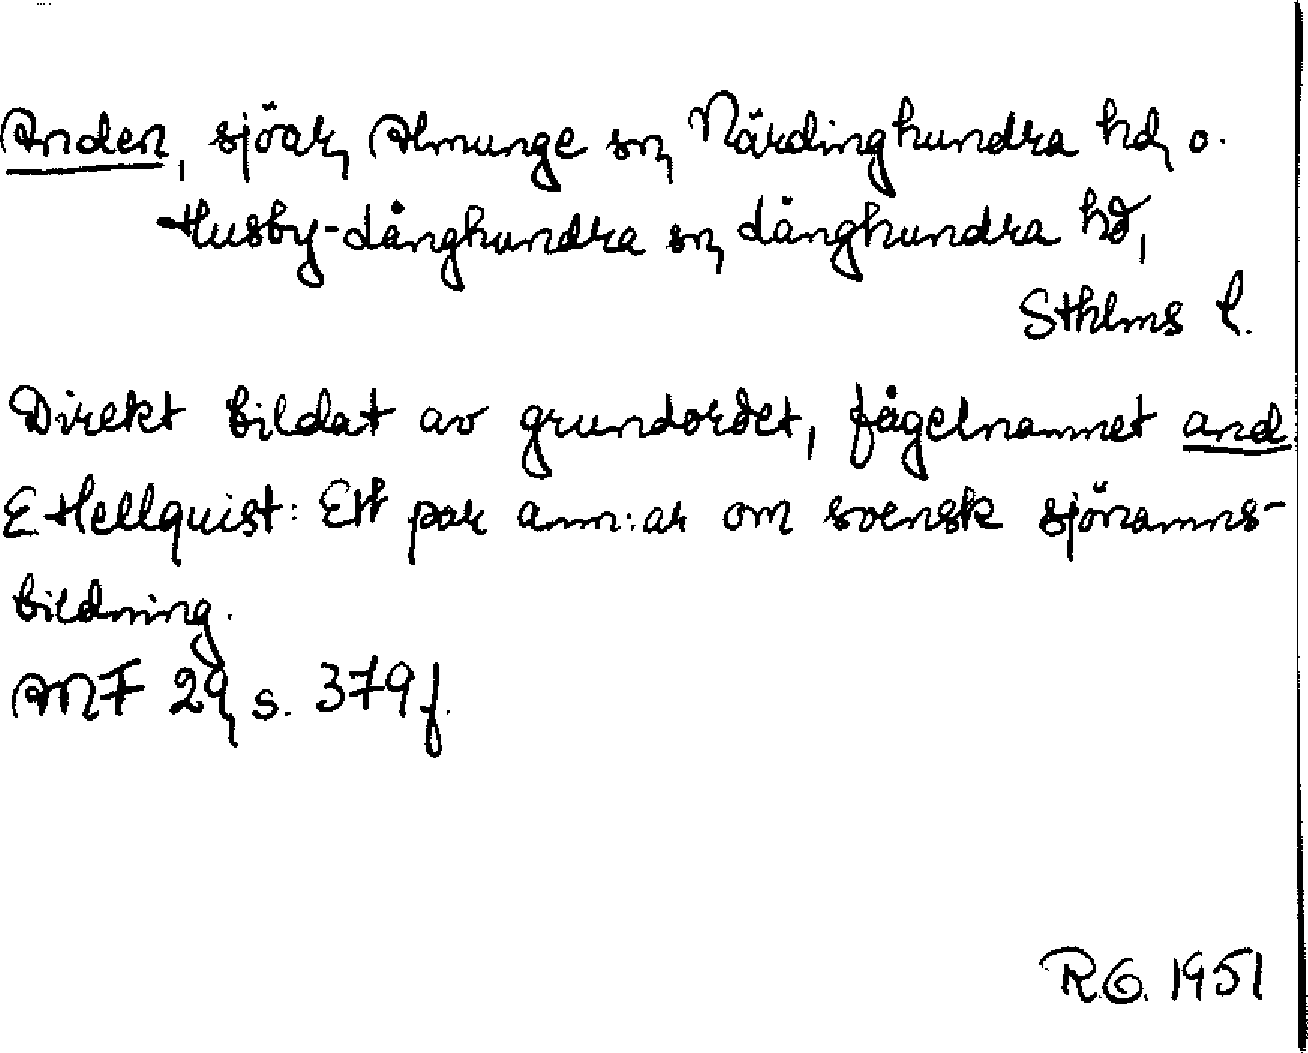 Anden, sjöar, Almunge sn, Närdinghundra hd, o.
Husby-Långhundra sn, Långhundra hd,
Sthlms l.
Direkt bildat av grundordet, fågelnamnet and.
E Hellquist: Ett par anm:ar om svensk sjönamns-
bildning.
ANF 29, s. 379 f.
R.G. 1951